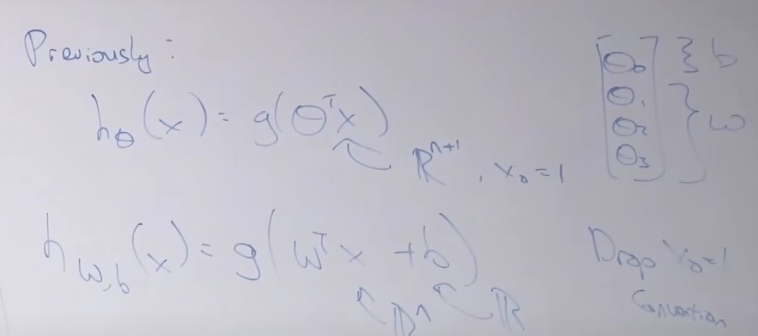 Previously:
h_θ(x) = g(θ^T x)
ℝ^{n+1}, x_0 = 1
[θ_0 θ_1 θ_2 θ_3]
} b
} w
h_{w,b}(x) = g(w^T x + b)
ℝ^n
ℝ
Drop x_0 = 1
Convention